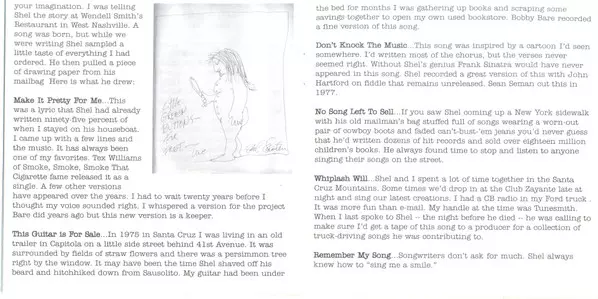 your imagination. I was telling
Shel the story at Wendell Smith's
Restaurant in West Nashville. A
song was born, but while we
were writing Shel sampled a
little taste of everything I had
ordered. He then pulled a piece
of drawing paper from his
mailbag Here is what he drew:
Make It Pretty For Me...This
was a lyric that Shel had already
written ninety-five percent of
when I stayed on his houseboat.
I came up with a few lines and
the music. It has always been
one of my favorites. Tex Williams
of Smoke, Smoke, Smoke That
Cigarette fame released it as a
single. A few other versions
have appeared over the years. I had to wait twenty years before I
thought my voice sounded right. I whispered a version for the project
Bare did years ago but this new version is a keeper.
This Guitar is For Sale...In 1975 in Santa Cruz I was living in an old
trailer in Capitola on a little side street behind 41st Avenue. It was
surrounded by fields of straw flowers and there was a persimmon tree
right by the window. It may have been the time Shel shaved off his
beard and hitchhiked down from Sausolito. My guitar had been under
the bed for months I was gathering up books and scraping some
savings together to open my own used bookstore. Bobby Bare recorded
a fine version of this song.
Don't Knock The Music...This song was inspired by a cartoon I'd seen
somewhere. I'd written most of the chorus, but the verses never
seemed right. Without Shel's genius Frank Sinatra would have never
appeared in this song. Shel recorded a great version of this with John
Hartford on fiddle that remains unreleased. Sean Seman cut this in
1977.
No Song Left To Sell...If you saw Shel coming up a New York sidewalk
with his old mailman's bag stuffed full of songs wearing a worn-out
pair of cowboy boots and faded can't-bust-'em jeans you'd never guess
that he'd written dozens of hit records and sold over eighteen million
children's books. He always found time to stop and listen to anyone
singing their songs on the street.
Whiplash Will...Shel and I spent a lot of time together in the Santa
Cruz Mountains. Some times we'd drop in at the Club Zayante late at
night and sing our latest creations. I had a CB radio in my Ford truck .
It was more fun than e-mail. My handle at the time was Tunesmith.
When I last spoke to Shel – the night before he died – he was calling to
make sure I'd get a tape of this song to a producer for a collection of
truck-driving songs he was contributing to.
Remember My Song...Songwriters don't ask for much. Shel always
knew how to "sing me a smile."